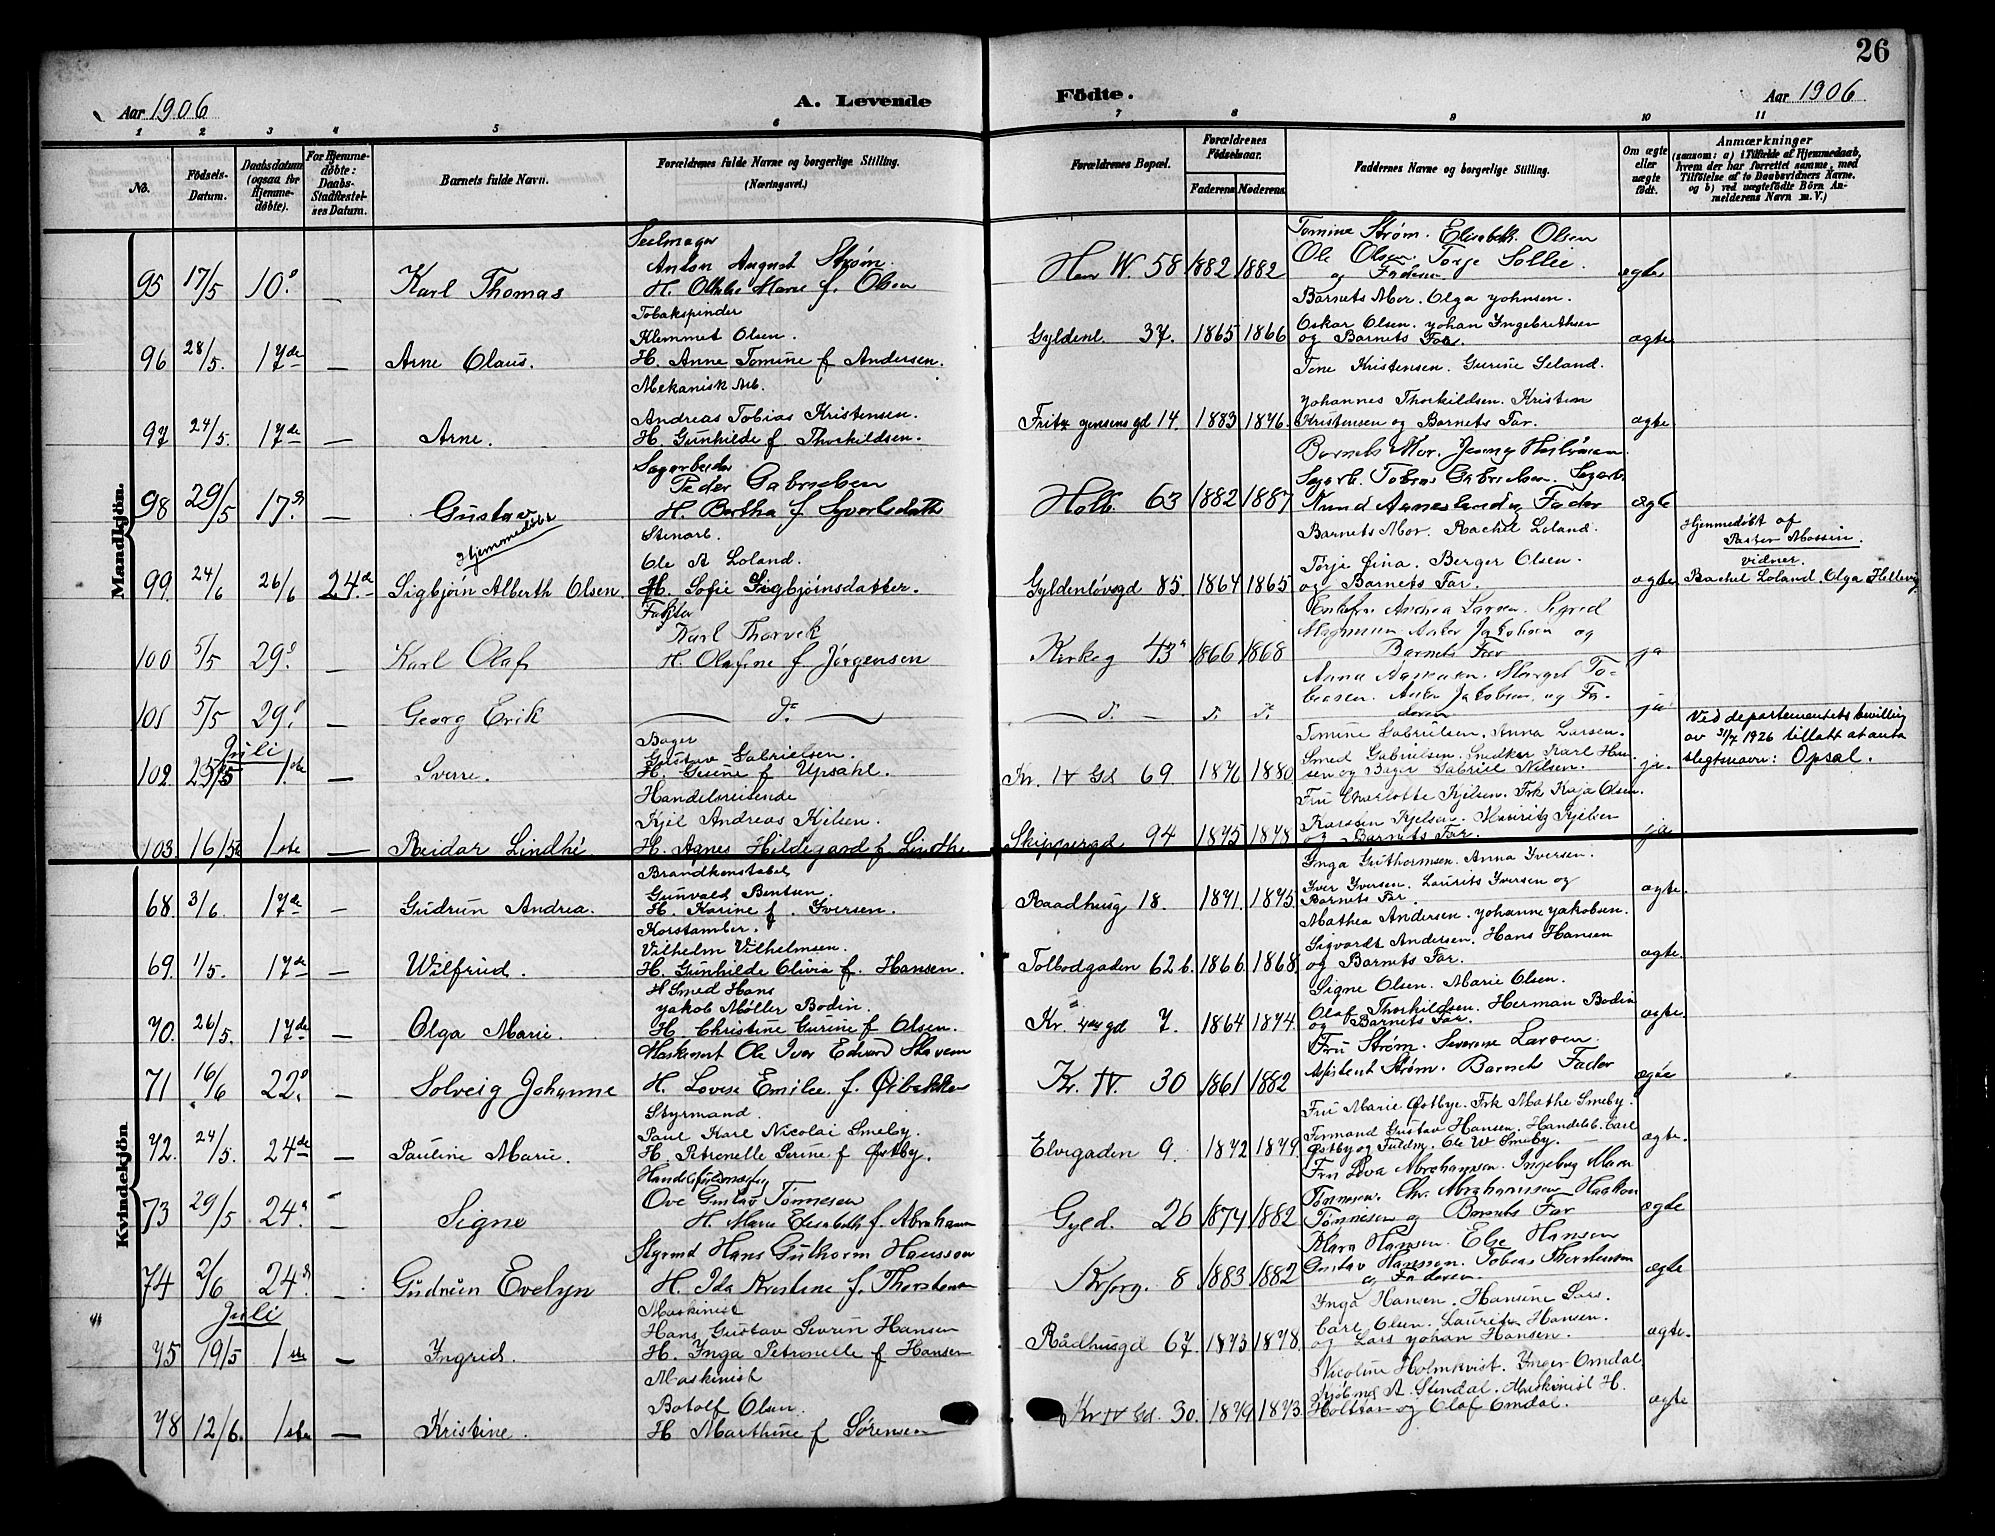 26
Aar 1906
A. Levende
Födte.
Aar 1906
1 2 3 4 5 6 7 8 9 10 11
No.
Födsels-Datum.
Daabsdatum (ogsaa for Hjemme-döbte).
For Hjemme-döbte: Daabs-Stadfæstel-ses Datum.
Barnets fulde Navn.
Forældrenes fulde Navne og borgerlige Stilling. (Næringsvei.)
Forældrenes Bopæl.
Forældrenes Födselsaar.
Faderens. Moderens.
Faddernes Navne og borgerlige Stilling.
Om ægte eller uægte födt.
Anmærkninger
(saasom: a) i Tilfælde af Hjemmedaab, hvem der har forrettet samme, med Tilföielse af to Daabsvidners Navne. og b) ved uægtefödte Börn An-melderens Navn m. V.)
Mandkjön.
Seelmager
Anton August Strøm.
95 17/5 10. — Karl Thomas
H. Othilie Marie f. Olsen
Hen W. 58 1882 1882
Tomine Strøm. Elisabeth Olsen
Ole Olsen Torje Sollie.
og Faderen
ægte
Tobakspinder
Klemmet Olsen.
96 28/5. 17de — Arne Olaus.
H. Anne Tomine f Andersen.
Gyldenl. 37. 1865 1866
Barnets Mor. Olga Johnsen.
Oskar Olsen. Johan Ingebrethsen
og Barnets Far.
ægte
Mekanisk Arb.
Andreas Tobias Kristensen.
97 24/5. 17de — Arne.
H. Gunhilde f Thorkildsen.
Fritz Jensens gd 14. 1883 1876
Tone Kristensen. Gurine Seland.
Johannes Thorkildsen. Kristian
Kristensen og Barnets Far.
ægte
Sagarbeider
Peder Gabrielsen
98 29/5 17. — Gustav
H. Bertha f
Holb. 63 1882 1887
Barnets Mor. Jenny
Sagarb. Tobias Gabrielsen. Sagarb.
Fader
ægte
Hjemmedøbt
Stenarb.
Ole A Loland.
99. 24/6 26/6 24de Sigbjørn Alberth Olsen
H. Sofie Sigbjørnsdatter.
Gyldenløvsgd 85. 1864 1865
Barnets Mor. Rachel Loland.
Torje Fina. Berger Olsen.
og Barnets Far.
ægte
Hjemmedøbt af
Pastor Mossin.
vidner.
Rachel Loland, Olga Hellevig
Faktor
Karl Thorvik
100 5/5 29. — Karl Olaf
H. Olafine f Jørgensen
Kirkeg 43 1866 1868
Andrea Larsen. Sigrid
Magnusen. Jakobsen og
Barnets Far
ja
101 5/5 29. — Georg Erik
d.
Anna Margit To-
biassen. Jakobsen og Fa-
deren
ja
Juli
Bager
Gustav Gabrielsen.
102. 25/5 1ste — Sverre.
H. Gurine f Upsahl.
Kr. IV Gd 69. 1876 1880
Tomine Gabrielsen. Anna Larsen.
Smed Gabrielsen. Snedker Karl Han-
sen og Bager Gabriel Nilsen.
ja.
Ved departementets bevilling
av 31/7 1926 tillatt at anta
slegtsnavn: Opsal.
Handelsreisende
Kjel Andreas Kjelsen.
103. 16/5 1ste — Reidar Lindhé
H. Agnes Hildegard f Lindhe
Skippergd 94 1875 1878
Fru Charlotte Kjelsen. Frk Kaja Olsen.
Karsten Kjelsen. Mauritz Kjelsen
og Barnets Far.
ja
Kvindekjön
Brandkonstabel
Gunvald Bentsen.
68. 3/6. 17de — Gudrun Andrea.
H. Karine f. Iversen.
Raadhusg 18. 1871. 1875
Inga Guthormsen. Anna Iversen.
Iver Iversen. Laurits Iversen og
Barnets Far.
ægte.
Vilhelm Vilhelmsen.
69. 1/5. 17de — Wilfrud.
H. Gunhilde Olivia f. Hansen.
Tolbodgaden 62b. 1866. 1868.
Mathea Andersen. Johanne Jakobsen.
Sigvardt Andersen. Hans Hansen
og Barnets Far.
ægte.
Smed Hans
Jakob Møller Bodin.
70. 26/5. 17de — Olga Marie.
H. Christine Gurine f Olsen.
Kr. 4de gd 7. 1864 1874
Signe Olsen. Marie Olsen.
Olaf Thorkildsen. Herman Bodin
og Barnets Far.
ægte.
Maskinist Ole Iver Edvard Stavem
71 16/6 22. — Solveig Johanne
H. Lovise Emilie f. Øibakken
Kr. IV. 30 1861 1882
Fru Strøm. Severine Larsen.
Assistent Strøm. Barnets Fader
ægte
Styrmand.
Paul Karl Nicolai Smeby.
72. 24/5. 24de — Pauline Marie.
H. Petronelle Serine f Østby.
Elvegaden 9. 1872 1879.
Fru Marie Østbye. Frk Mathe Smeby.
Formand Gustav Hansen. Handelsb. Carl
Østby og Fuldm. Ole W Smeby.
ægte.
Handelsfuldmægtig
Ove Gustav Tønnesen
73 29/5 24. — Signe
H. Marie Elisabeth f Abraham
Gyld. 26 1874 1882
Fru Lova Abrahamsen. Ingeborg Marie
Tønnesen. Chr. Abrahamsen Haakon
Tønnesen og Barnets Far
ægte
Styrmd Hans Guthorm Hanssen
74 2/6 24. Gudrun Evelyn
H. Ida Kristine f. Thorstensen
Kr torg. 8 1883 1882
Klara Hansen. Else Hansen
Gustav Hanssen. Tobias Thorstensen
og Faderen
ægte
Juli
Maskinist
Hans Gustav Severin Hansen
75 19/5 1ste — Ingrid.
H. Inga Petronelle f Hansen
Rådhusgd 67. 1873 1878.
Inga Hansen. Hansine Lars.
Carl Olsen. Lauritz Hansen.
og Lars Johan Hansen.
ægte.
Maskinist
Botolf Olsen.
78 12/6. 1ste — Kristine.
H Marthine f Sørensen
Kr IV Gd. 30. 1879 1873.
Nicoline Holmkvist. Inger Omdal
Kjøbmd A. Stendal. Maskinist H.
Holtan og Olaf Omdal.
ægte